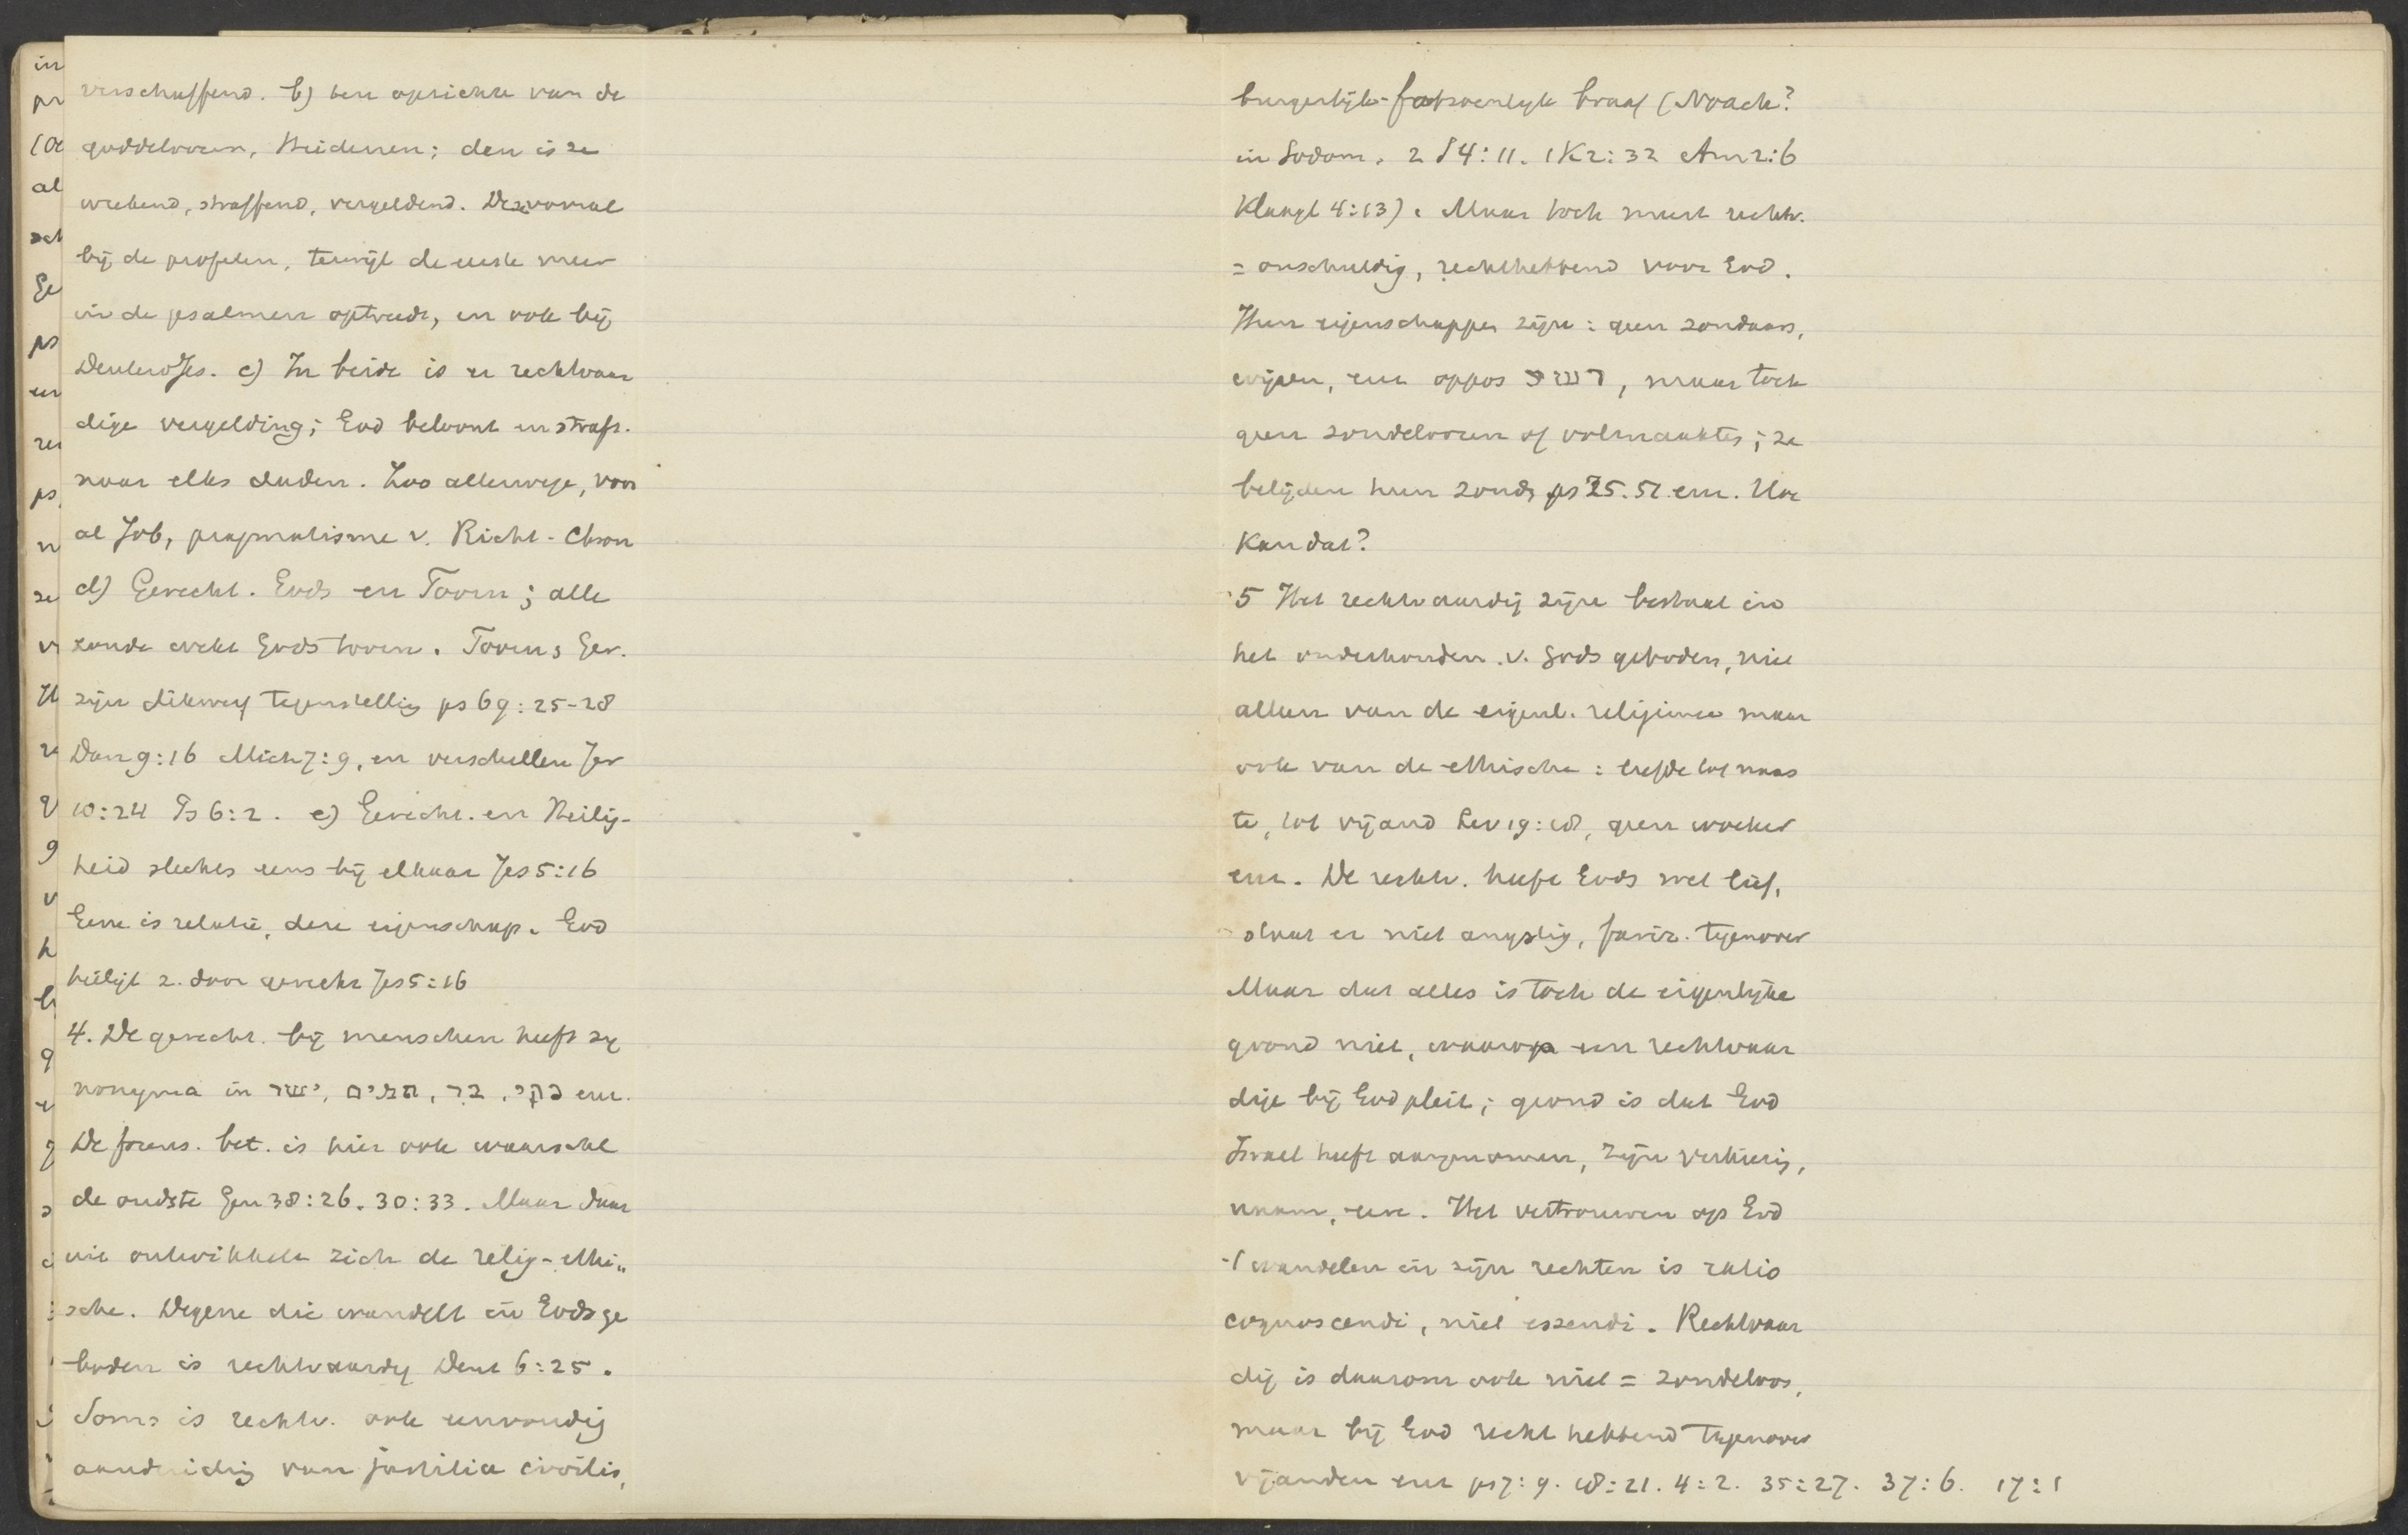 verschaffend. b) ten opzichte van de
goddeloozen, Heidenen; dan is ze
wrekend, straffend, vergeldend. Deze vooral
bij de profeten, terwijl de eerste meer
in de psalmen optreedt, en ook bij
DeuteroJes. c) In beide is er rechtvaar
dige vergelding; God beloont en straft.
naar elks daden. Zoo allerwege, voor
al Job, pragmatisme v. Richt-Chron
d) Gerecht. Gods en Toorn; alle
zonde wekt Gods toorn. Toorn, Ger.
zijn dikwerf tegenstellig ps 69:25-28
Dan 9:16 Mich 7:9, en verschillen Jer
10:24 Ps 6:2. e) Gerecht. en Heilig-
heid slechts eens bij elkaar Jes 5:16
Eene is relatie, dere eigenschap. God
heiligt z. door gerecht Jes 5:16
4. De gerecht. bij menschen heeft sy
nonyma in ישר, תמים, בר, נקי enz.
De forens. bet. is hier ook waarschl
de oudste Gen 38:26. 30:33. Maar daar
uit ontwikkelt zich de relig-ethi„
sche. Degene die wandelt in Gods ge
boden is rechtvaardig Deut 6:25.
Soms is rechtv. ook eenvoudig
aanduidig van justitia civilis,
burgerlijk-fatsoenlijk braaf (Noach?
in Sodom, 2 S 4:11. 1 K 2:32 Am 2:6
Klaagl 4:13). Maar toch meest rechtv.
= onschuldig, rechthebbend voor God.
Hun eigenschappen zijn: geen zondaars,
wijzen, enz oppos רשע, maar toch
geen zondeloozen of volmaakten; ze
belijden hun zonds ps 25. 51 enz. Hoe
kan dat?
5 Het rechtvaardig zijn bestaat in
het onderhouden v. Gods geboden, niet
alleen van de eigenl. religieuse maar
ook van de ethische: liefde tot naas
te, tot vijand Lev 19:18, geen woeker
enz. De rechtv. heeft Gods wet lief,
staat er niet angstig, fariz. tegenover
Maar dat alles is toch de eigenlijke
grond niet, waarop een rechtvaar
dige bij God pleit; grond is dat God
Israel heeft aangenomen, zijn verkiezig,
naam, eer. Het vertrouwen op God
wandelen in zijn rechten is ratio
cognoscendi, niet essendi. Rechtvaar
dig is daarom ook niet = zondeloos,
maar bij God recht hebbend tegenover
vijanden enz ps 7:9. 18:21. 4:2. 35:27. 37:6. 17:1